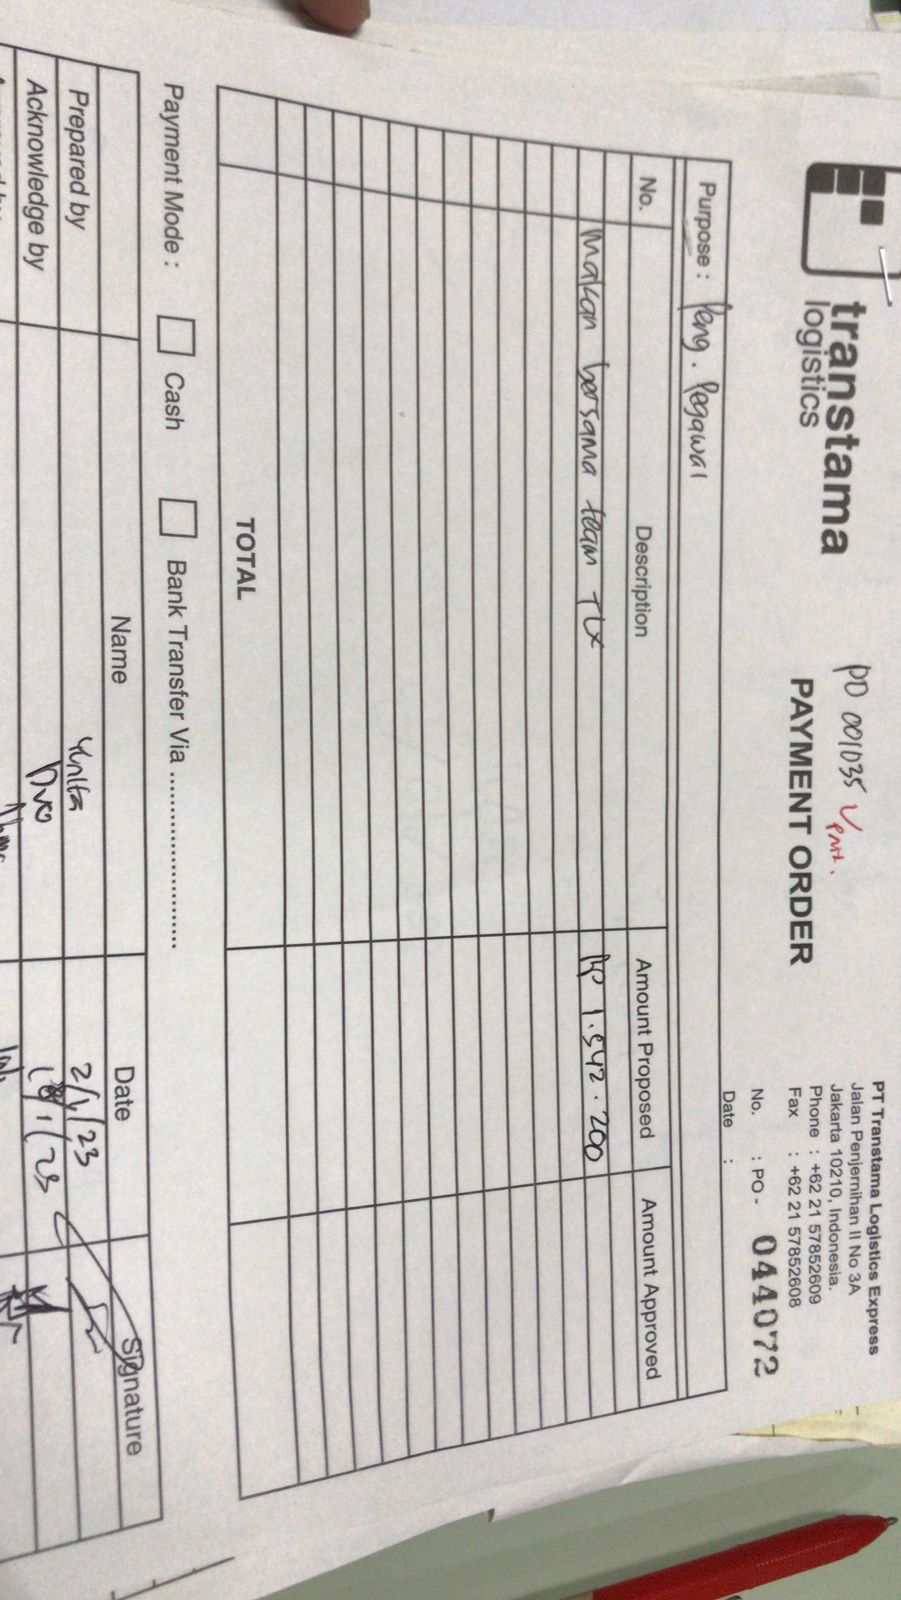 transtama
logistics
PO 001035
PAYMENT ORDER
PT Transtama Logistics Express
Jalan Penjernihan II No 3A
Jakarta 10210, Indonesia.
Phone : +62 21 57852609
Fax : +62 21 57852608
No. : PO - 044072
Date :
Purpose : Peng. Pegawai
No. Description Amount Proposed Amount Approved
Makan bersama team TLX Rp 1.542.200
TOTAL
Payment Mode : Cash Bank Transfer Via ......................
Name Date Signature
Prepared by Yunita 2/1/23
Acknowledge by